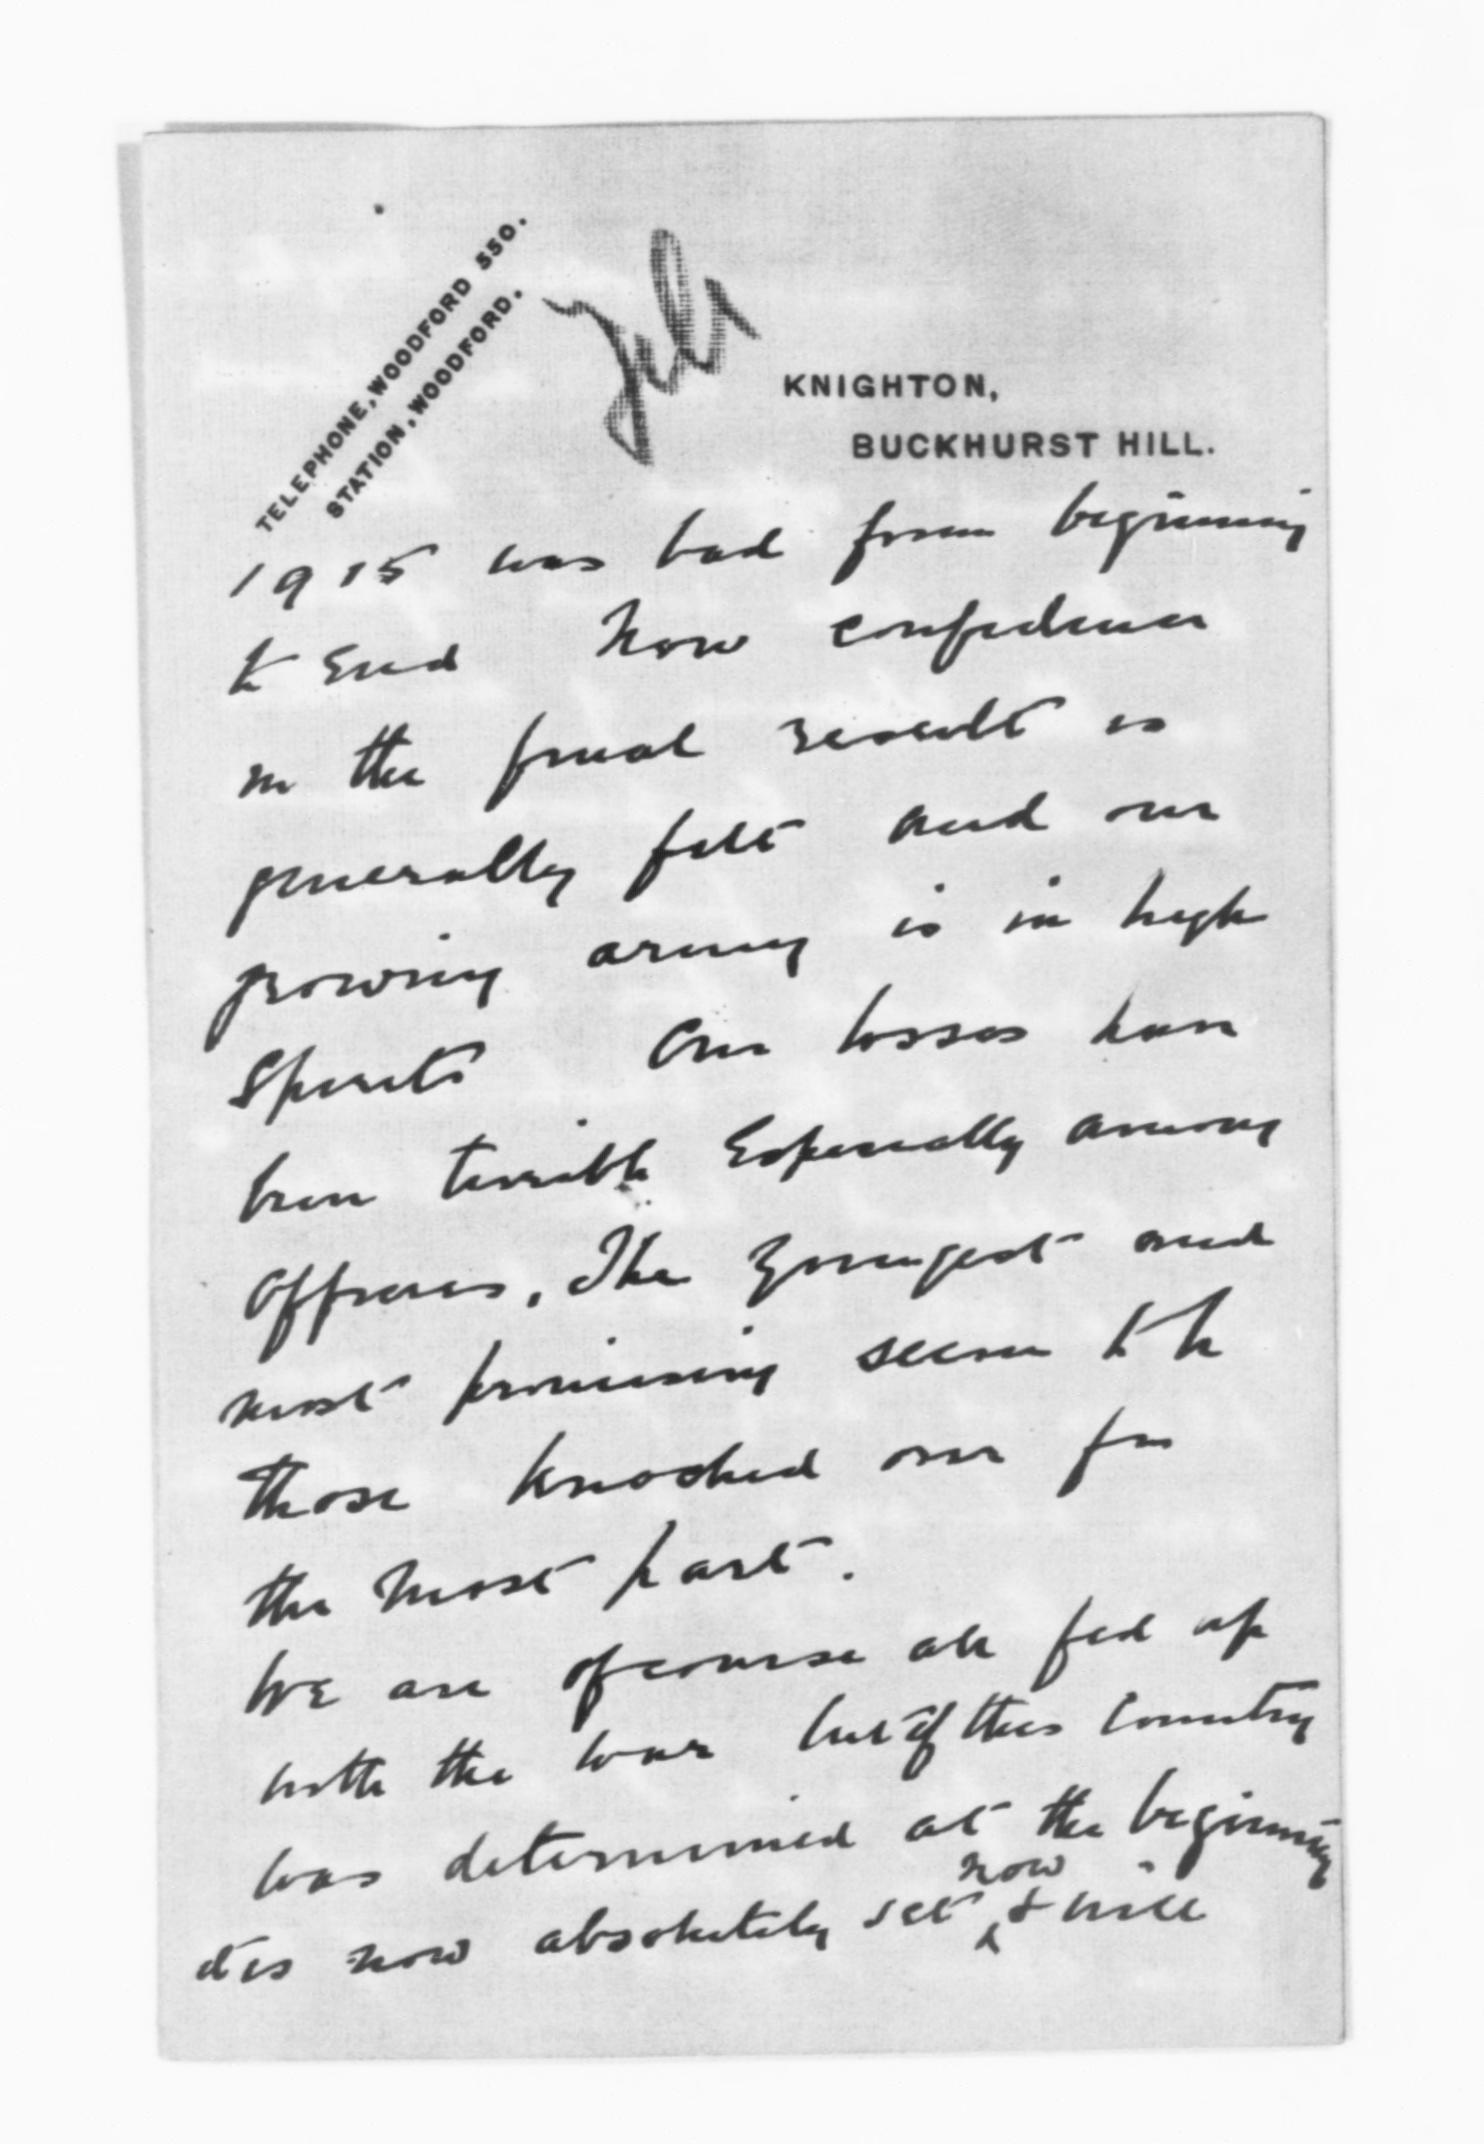 TELEPHONE, WOODFORD 550.
STATION, WOODFORD.
KNIGHTON,
BUCKHURST HILL.
1915 was bad from beginning
to end Now confidence
in the final result is
generally felt and our
growing army is in high
spirits Our losses have
been terrible Especially among
officers, The youngest and
most promising seem to be
those knocked over for
the most part.
We are of course all fed up
with the war but if this country
was determined at the beginning
it is now absolutely set now & will